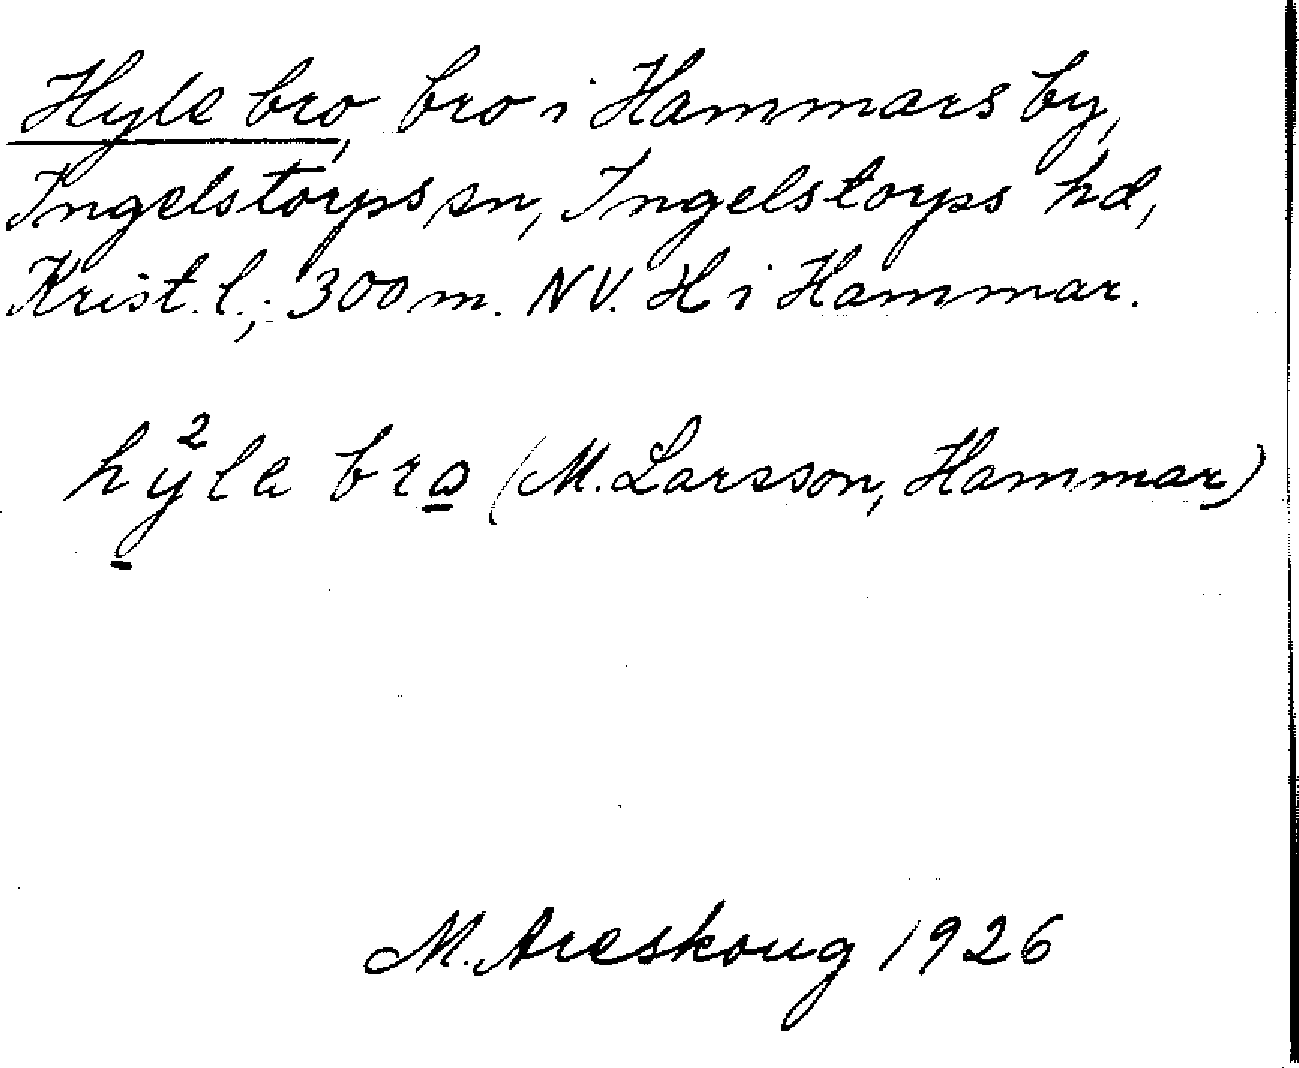 Hyle bro, bro i Hammars by,
Ingelstorps sn, Ingelstorps hd,
Krist. l.; 300 m. NV. H i Hammar.
hy̠²la bro̠ (M. Larsson, Hammar)
M. Areskoug 1926